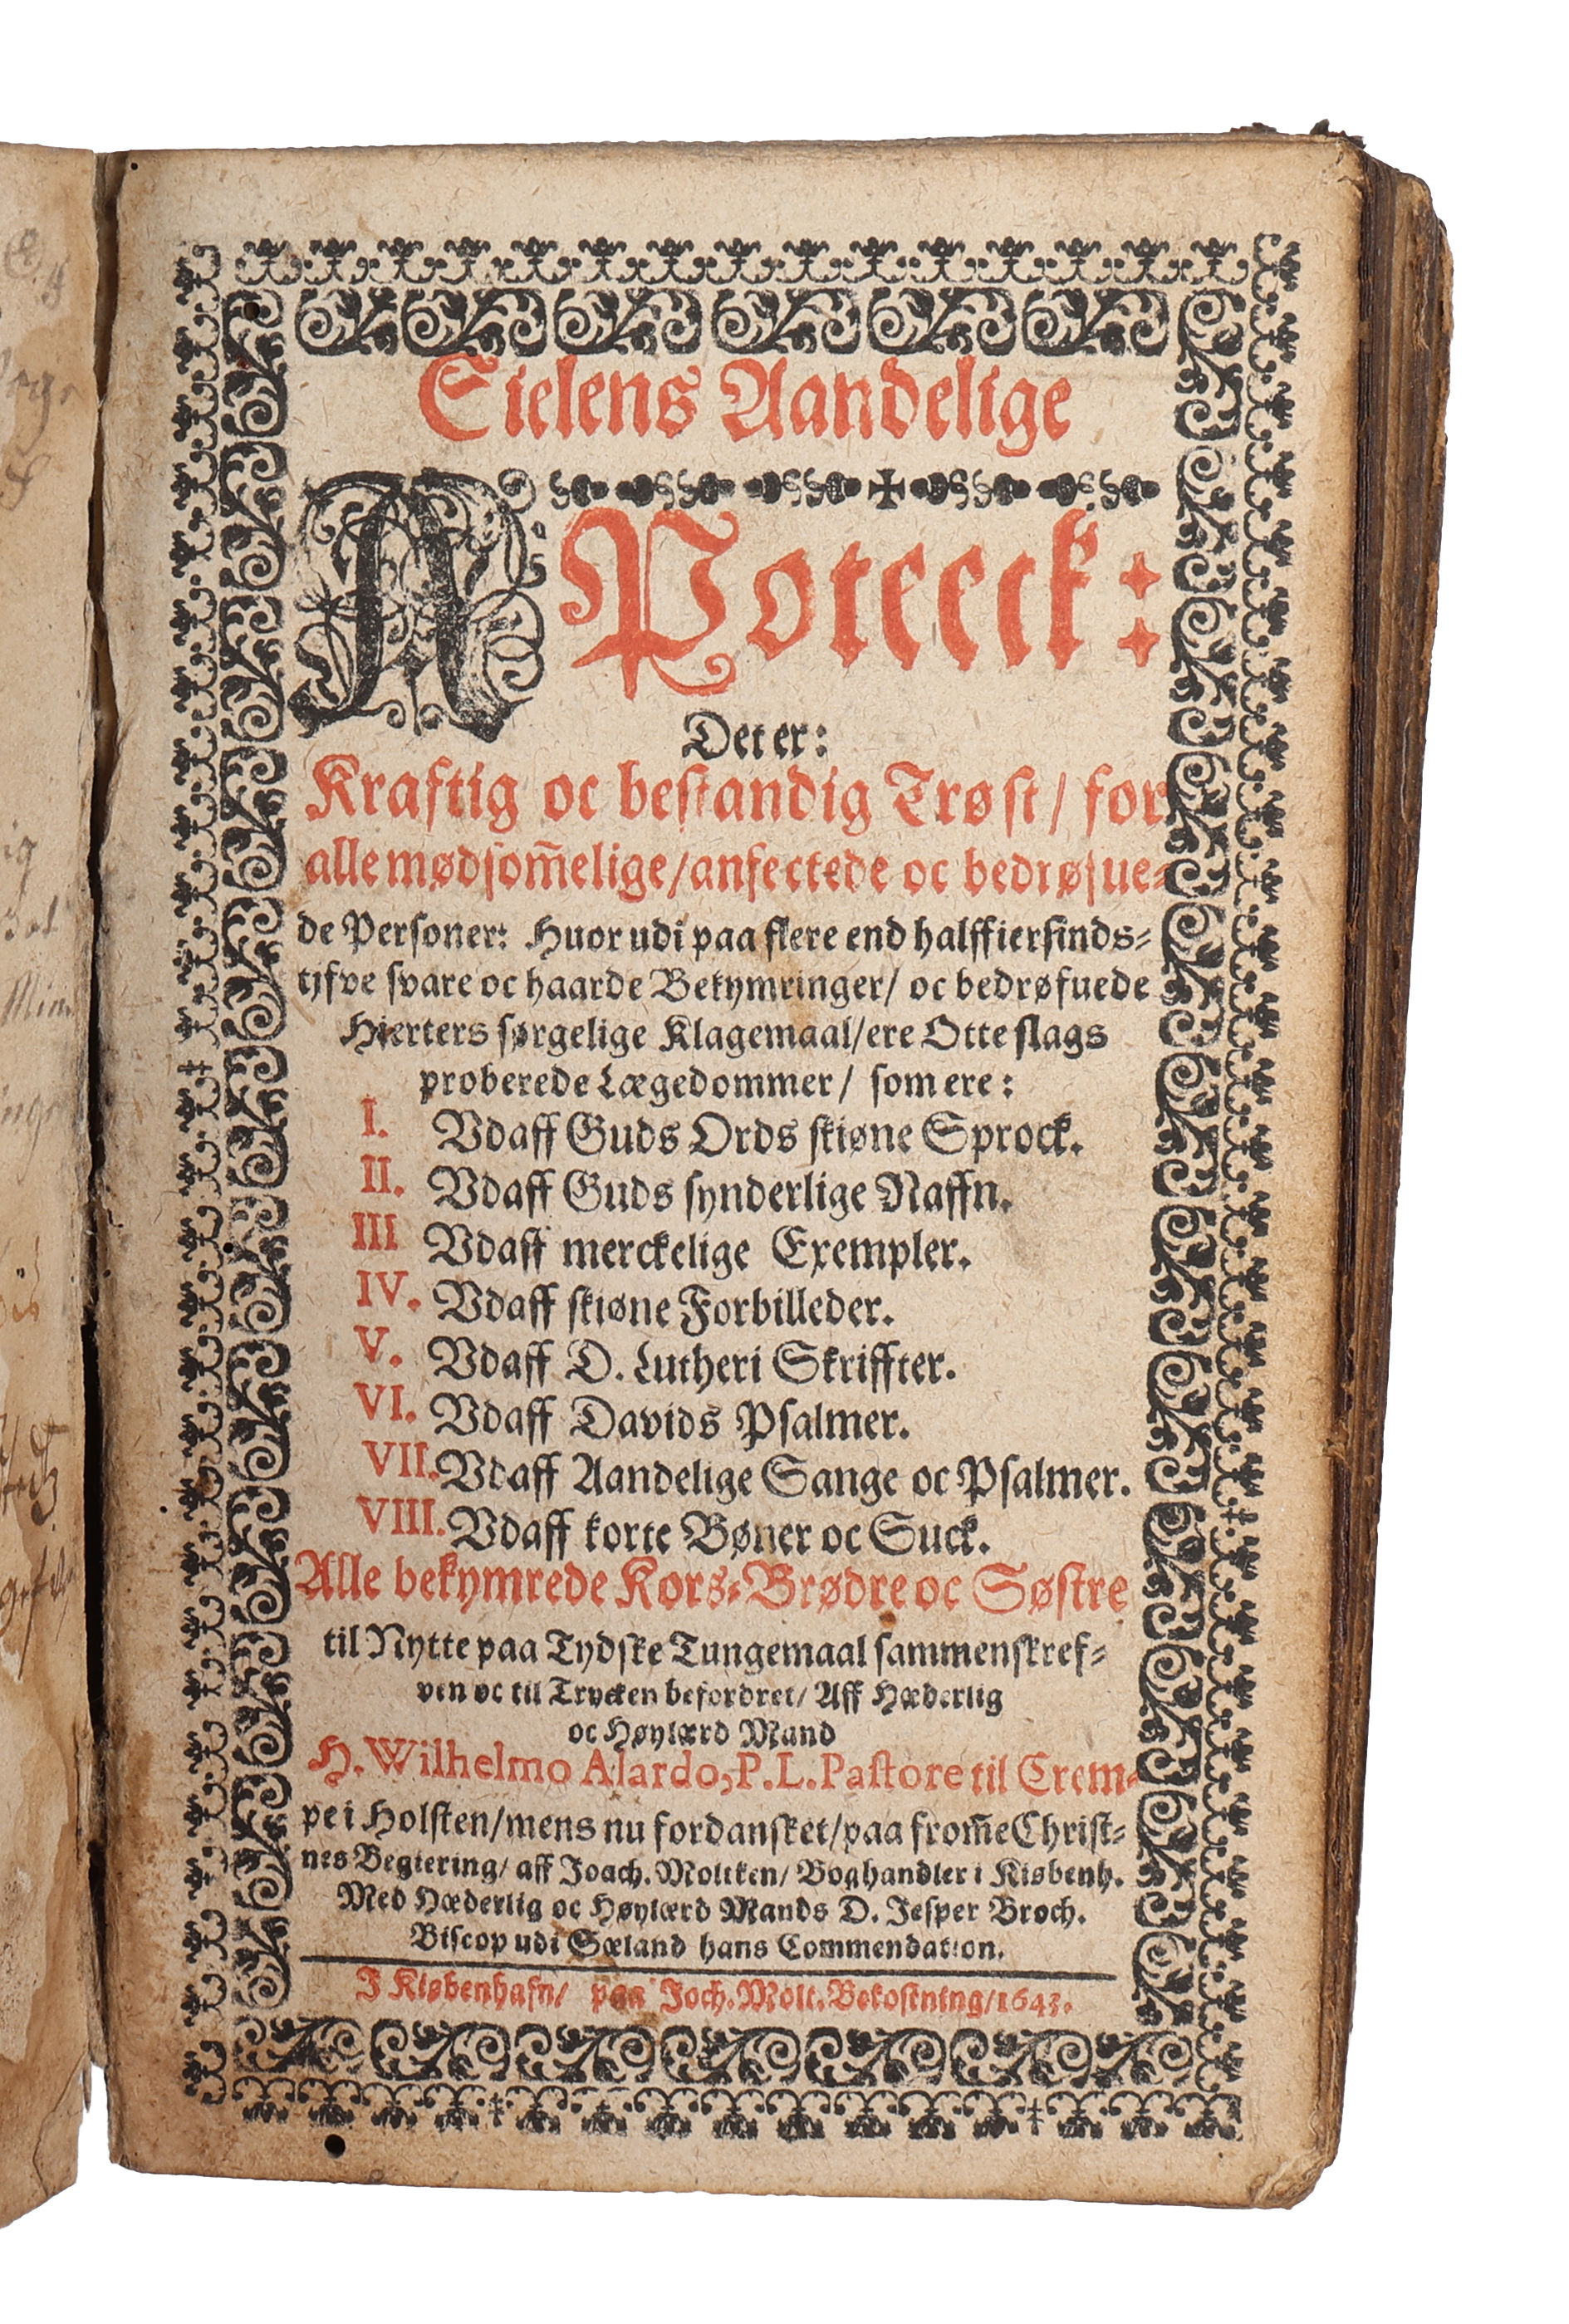 Sielens Aandelige
APoteeck:
Det er:
Kraftig oc bestandig Trøst/ for
alle mødsom̃elige/anfectede oc bedrøfue-
de Personer: Huor udi paa flere end halffiersinds-
tjfve svare oc haarde Bekymringer/ oc bedrøfuede
Hierters sørgelige Klagemaal/ere Otte slags
proberede Lægedommer/ som ere:
I. Vdaff Guds Ords skiøne Sprock.
II. Vdaff Guds synderlige Naffn.
III Vdaff merckelige Exempler.
IV. Vdaff skiøne Forbilleder.
V. Vdaff D. Lutheri Skriffter.
VI. Vdaff Davids Psalmer.
VII. Vdaff Aandelige Sange oc Psalmer.
VIII. Vdaff korte Bøner oc Suck.
Alle bekymrede Kors-Brødre oc Søstre
til Nytte paa Tydske Tungemaal sammenskref-
ven oc til Trycken befordret/ Aff Hæderlig
oc Høylærd Mand
H. Wilhelmo Alardo, P. L. Pastore til Crem-
pe i Holsten/mens nu fordansket/paa from̃e Christ-
nes Begiering/ aff Joach. Moltken/ Boghandler i Kiøbenh.
Med Hæderlig oc Høylærd Mands D. Jesper Broch.
Biscop udi Sæland hans Commendation.
J Kiøbenhafn/ paa Joch. Molt. Bekostning/1643.